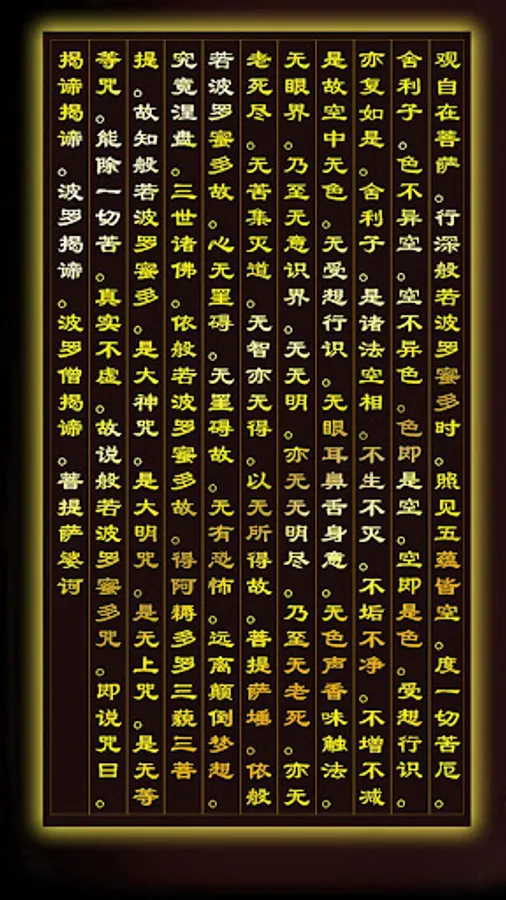 观自在菩萨。行深般若波罗蜜多时。照见五蕴皆空。度一切苦厄。
舍利子。色不异空。空不异色。色即是空。空即是色。受想行识。
亦复如是。舍利子。是诸法空相。不生不灭。不垢不净。不增不减
是故空中无色。无受想行识。无眼耳鼻舌身意。无色声香味触法。
无眼界。乃至无意识界。无无明。亦无无明尽。乃至无老死。亦无
老死尽。无苦集灭道。无智亦无得。以无所得故。菩提萨埵。依般
若波罗蜜多故。心无罣碍。无罣碍故。无有恐怖。远离颠倒梦想。
究竟涅盘。三世诸佛。依般若波罗蜜多故。得阿耨多罗三藐三菩
提。故知般若波罗蜜多。是大神咒。是大明咒。是无上咒。是无等
等咒。能除一切苦。真实不虚。故说般若波罗蜜多咒。即说咒曰。
揭谛揭谛。波罗揭谛。波罗僧揭谛。菩提萨婆诃